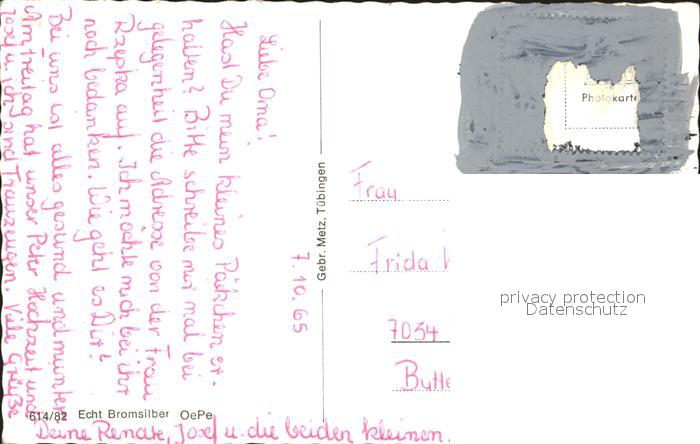 7.10.65
Liebe Oma!
Hast Du mein kleines Päckchen er-
halten? Bitte schreibe mir mal bei
gelegenheit die Adresse von der Frau
Rzepka auf. Ich möchte mich bei ihr
noch bedanken. Wie geht es Dir?
Bei uns ist alles gesund und munter.
Am Freitag hat unser Peter Hochzeit und
Josef u. ich sind Trauzeugen. Viele Grüße
Deine Renate, Josef u. die beiden kleinen.
614/82 Echt Bromsilber OePe
Gebr. Metz, Tübingen
Photokarte
Frau
Frida
7054
Butte
privacy protection
Datenschutz